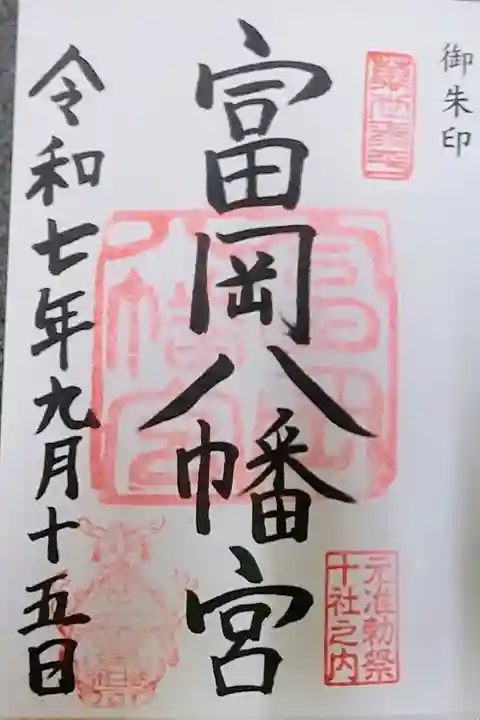 御朱印
元准勅祭
十社之内
富岡八幡宮
令和七年九月十五日